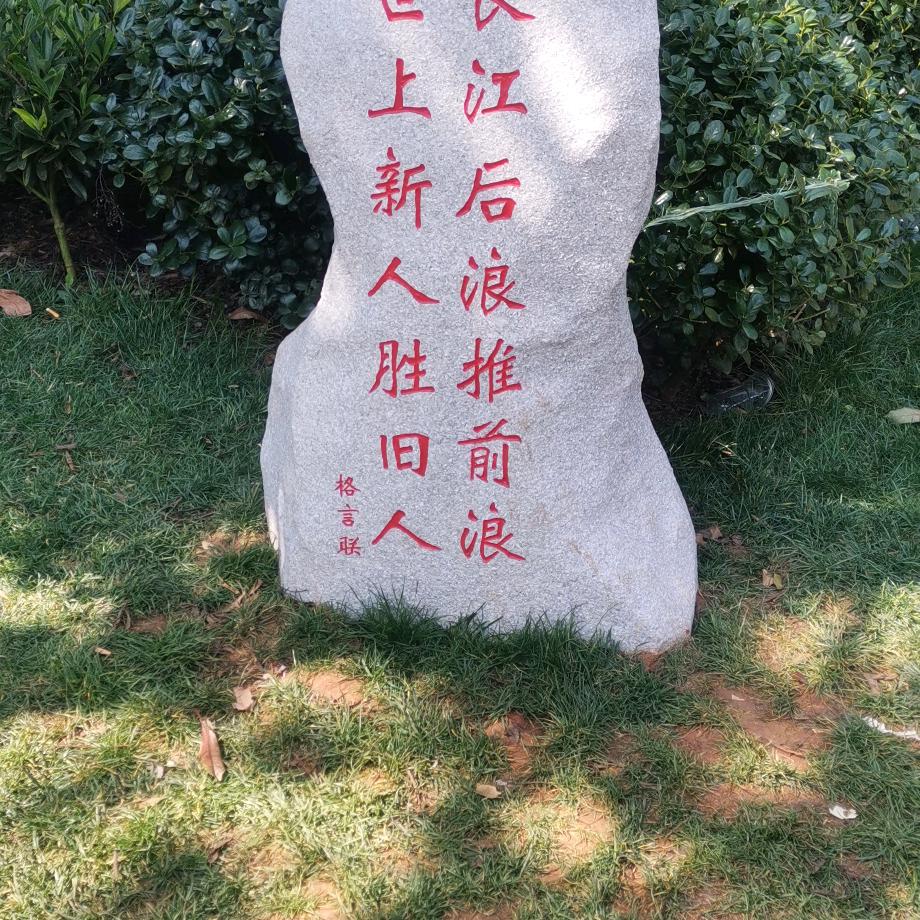 长江后浪推前浪
世上新人胜旧人
格言联